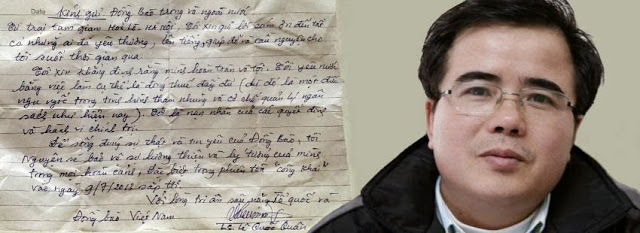 Date
Kính gửi Đồng Bào trong và ngoài nước
Từ trại tạm giam Hoả Lò - Hà Nội. Tôi xin gửi lời cảm ơn đến tất
cả những ai đã yêu thương, lên tiếng, giúp đỡ và cầu nguyện cho
tôi suốt thời gian qua.
Tôi xin khẳng định rằng mình hoàn toàn vô tội. Tôi yêu nước
bằng việc làm cụ thể là đóng thuế đầy đủ (dù đó là một điều
ngu ngốc trong tình hình tham nhũng và cơ chế quản lý ngân
sách như hiện nay). Tôi là nạn nhân của các quyết định
và hành vi chính trị.
Để sống đúng sự thật và tin yêu của Đồng Bào, tôi
nguyện sẽ bảo vệ sự lương thiện và lý tưởng của mình
trong mọi hoàn cảnh, đặc biệt trong phiên toà "công khai"
vào ngày 9/7/2013 sắp tới.
Với lòng tri ân sâu nặng Tổ quốc và
Đồng bào Việt Nam
Lê Quốc Quân